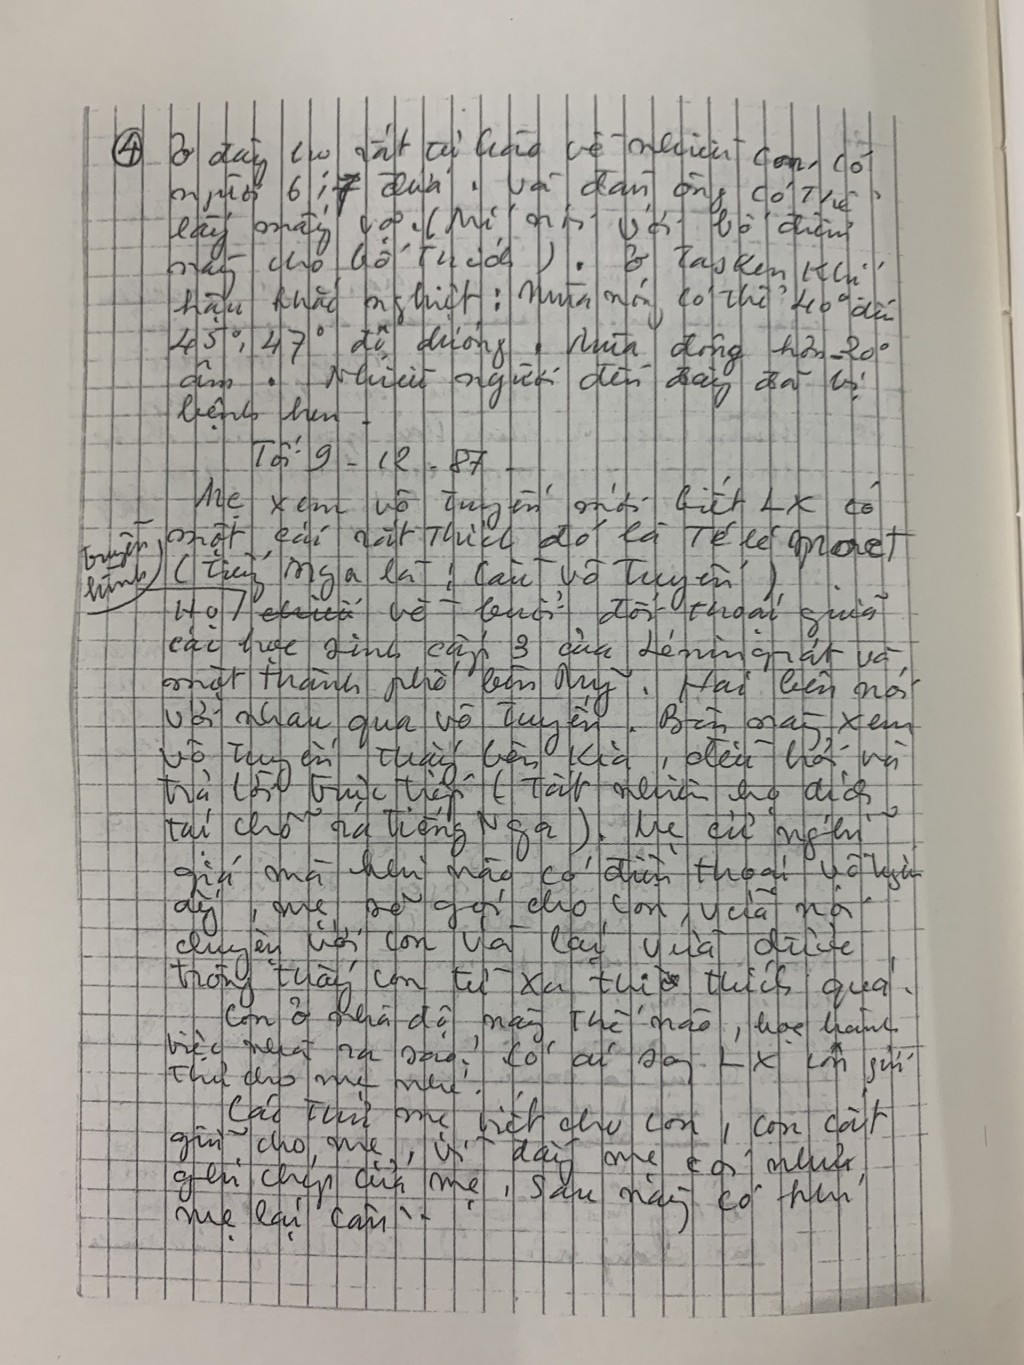 ④ Ở đây họ rất tự hào về nhiều con, có
người 6, 7 đứa. Và đàn ông có thể
lấy mấy vợ. (Mí nói với bố điều
này cho bố thích). Ở Tasken khí
hậu khắc nghiệt: Mùa nóng có thể 40° đến
45°, 47° độ dương. Mùa đông hơn -20°
âm. Nhiều người đến đây đã bị
bệnh hen.
Tối 9-12-87
Mẹ xem vô tuyến mới biết LX có
một cái rất thích đó là Télé
(tiếng Nga là: cầu vô tuyến)
truyền hình
Họ chiếu về buổi đối thoại giữa
các học sinh cấp 3 của Lêningrát và
một thành phố bên Mỹ. Hai bên nói
với nhau qua vô tuyến. Bên này xem
vô tuyến thấy bên kia, đều hỏi và
trả lời trực tiếp (Tất nhiên họ dịch
tại chỗ ra tiếng Nga). Mẹ cứ nghĩ
giá mà khi nào có điện thoại vô tuyến
ấy, mẹ sẽ gọi cho con, vừa nói
chuyện với con và lại vừa được
trông thấy con từ xa thì thích quá.
Con ở nhà độ này thế nào, học hành
việc nhà ra sao? Có ai sang LX con gửi
thư cho mẹ nhé.
Các thư mẹ viết cho con, con cất
giữ cho mẹ, vì đây mẹ coi như
ghi chép của mẹ, sau này có khi
mẹ lại cần..